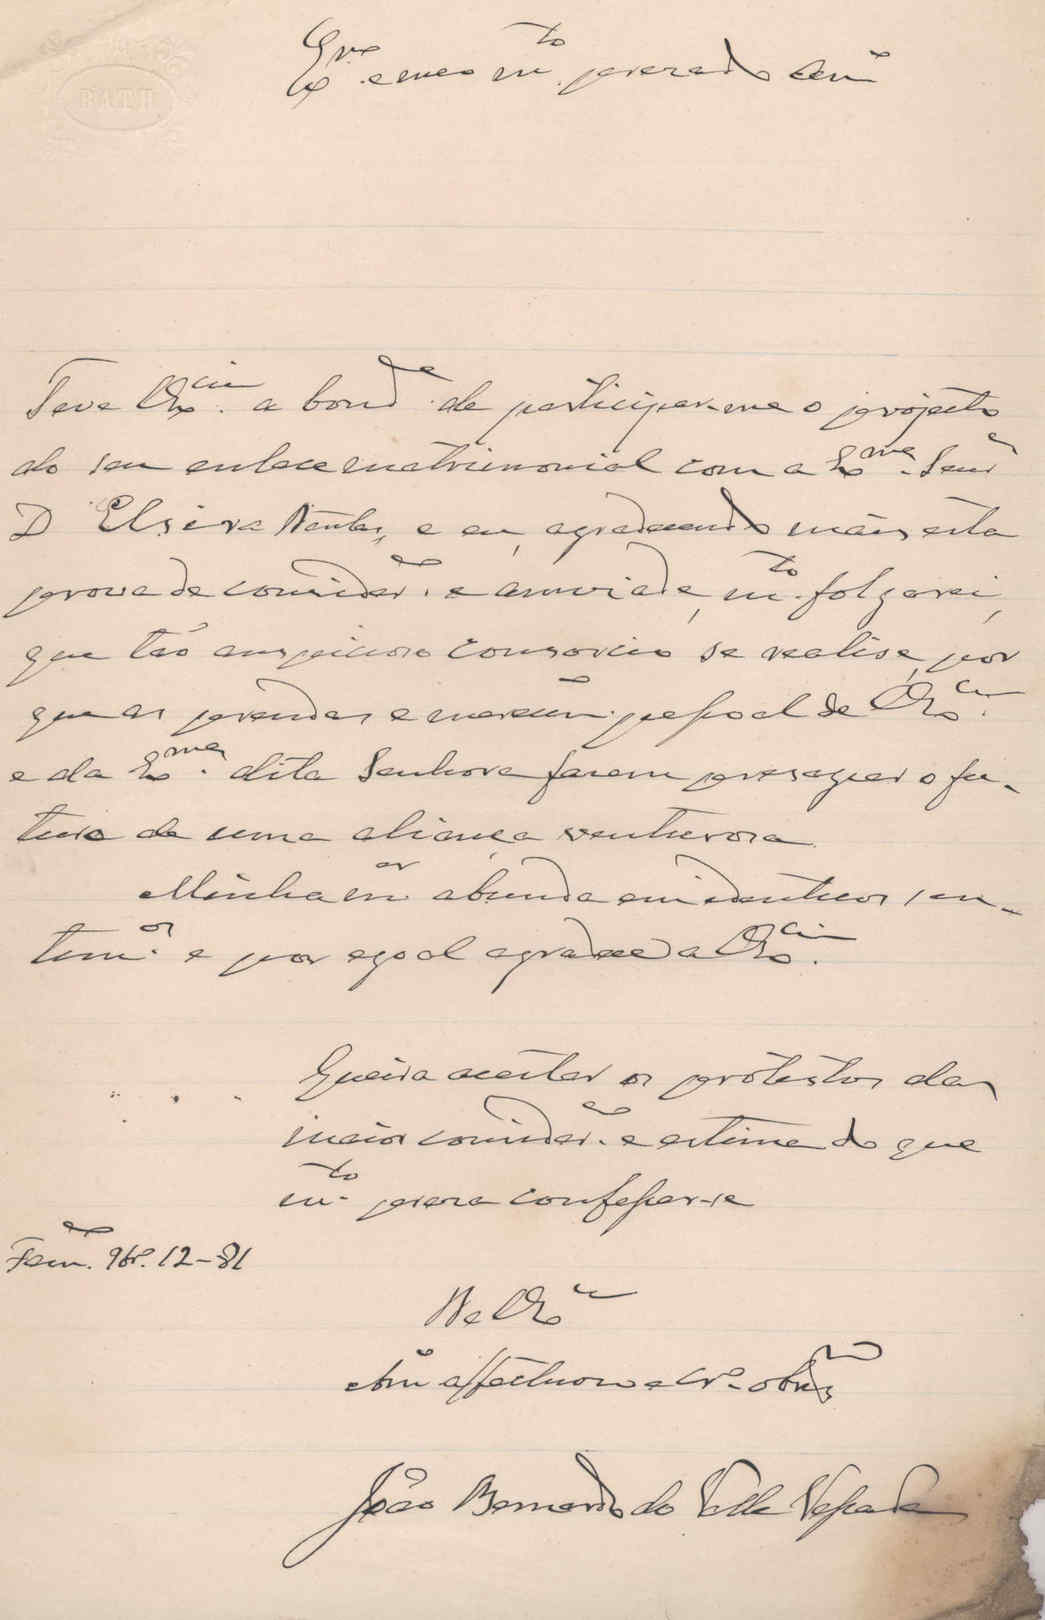 BATH
Exmo. e meu mto. prezado Amo
Teve V. Excia. a bonde. de participar-me o projecto
do seu enlace matrimonial com a Exma. Senra
D Elzira Nantes, e eu, agradecendo mais esta
prova de considerão. e amizade, mto. folgarei,
que tão auspicioso consorcio se realise, por
que as prendas e merecimo. pessoal de V. Excia.
e da Exma. dita Senhora fazem presagiar o fu-
turo de uma aliança venturosa
Minha mer. abunda em identicos sen-
timos. e por egoal agradece a V. Excia.
Queira aceitar os protestos da
maior considerão. e estima do que
mto. preza confessar-se
9br. 12-81
De V. Excia
Amo affectuoso e Cro. obrdo
João Bernardo do Valle Vessada